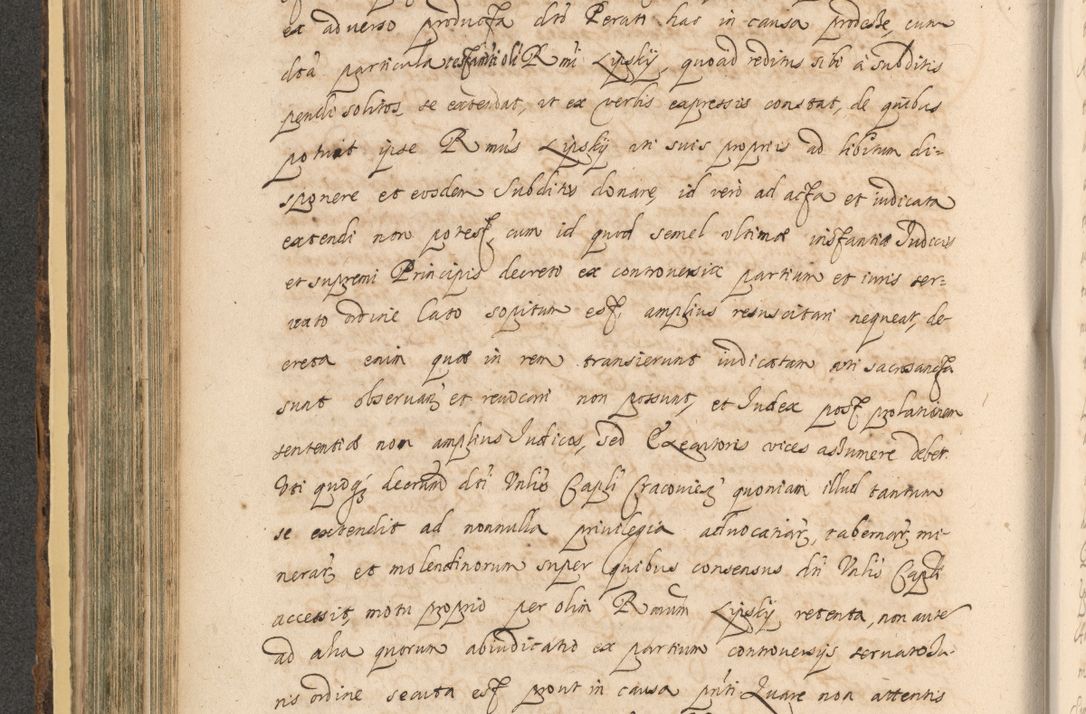 ex adverso producta dto Perati has in causa prodesse, cum
dta particula testamti oli Rmi Lipsky, quoad reditus sibi a subditis
pendi solitos, se extendat, ut ex verbis expressis constat, de quibus
potuit ipse Rmus Lipsky uti suis propriis ad libitum di-
sponere et eosdem subditis donare, id vero ad acta et iudicata
extendi non potest, cum id quod semel ultimæ instantiæ Judicis
et supremi Principis decreto ex controversia partium et iuris ser-
vato ordine lato sopitum est, amplius resuscitari nequeat, de-
creta enim quæ in rem transierunt iudicatam uti sacrosancta
sunt observanda et revocari non possunt, et Judex post prolationem
sententiæ non amplius Judicis, sed Exequtoris vices assumere debet.
Uti quoque decretum dti Vnlis Capli Cracovien quoniam illud tantum
se extendit ad nonnulla privilegia advocatiar, tabernar, mi-
nerar et molendinorum super quibus consensus dti Vnlis Capli
accessit, motu proprio per olim Rmum Lipsky retenta, non aute
ad alia quorum abiudicatio ex partium controversijs servato Ju-
ris ordine secuta est prout in causa pnti Quare non attentis